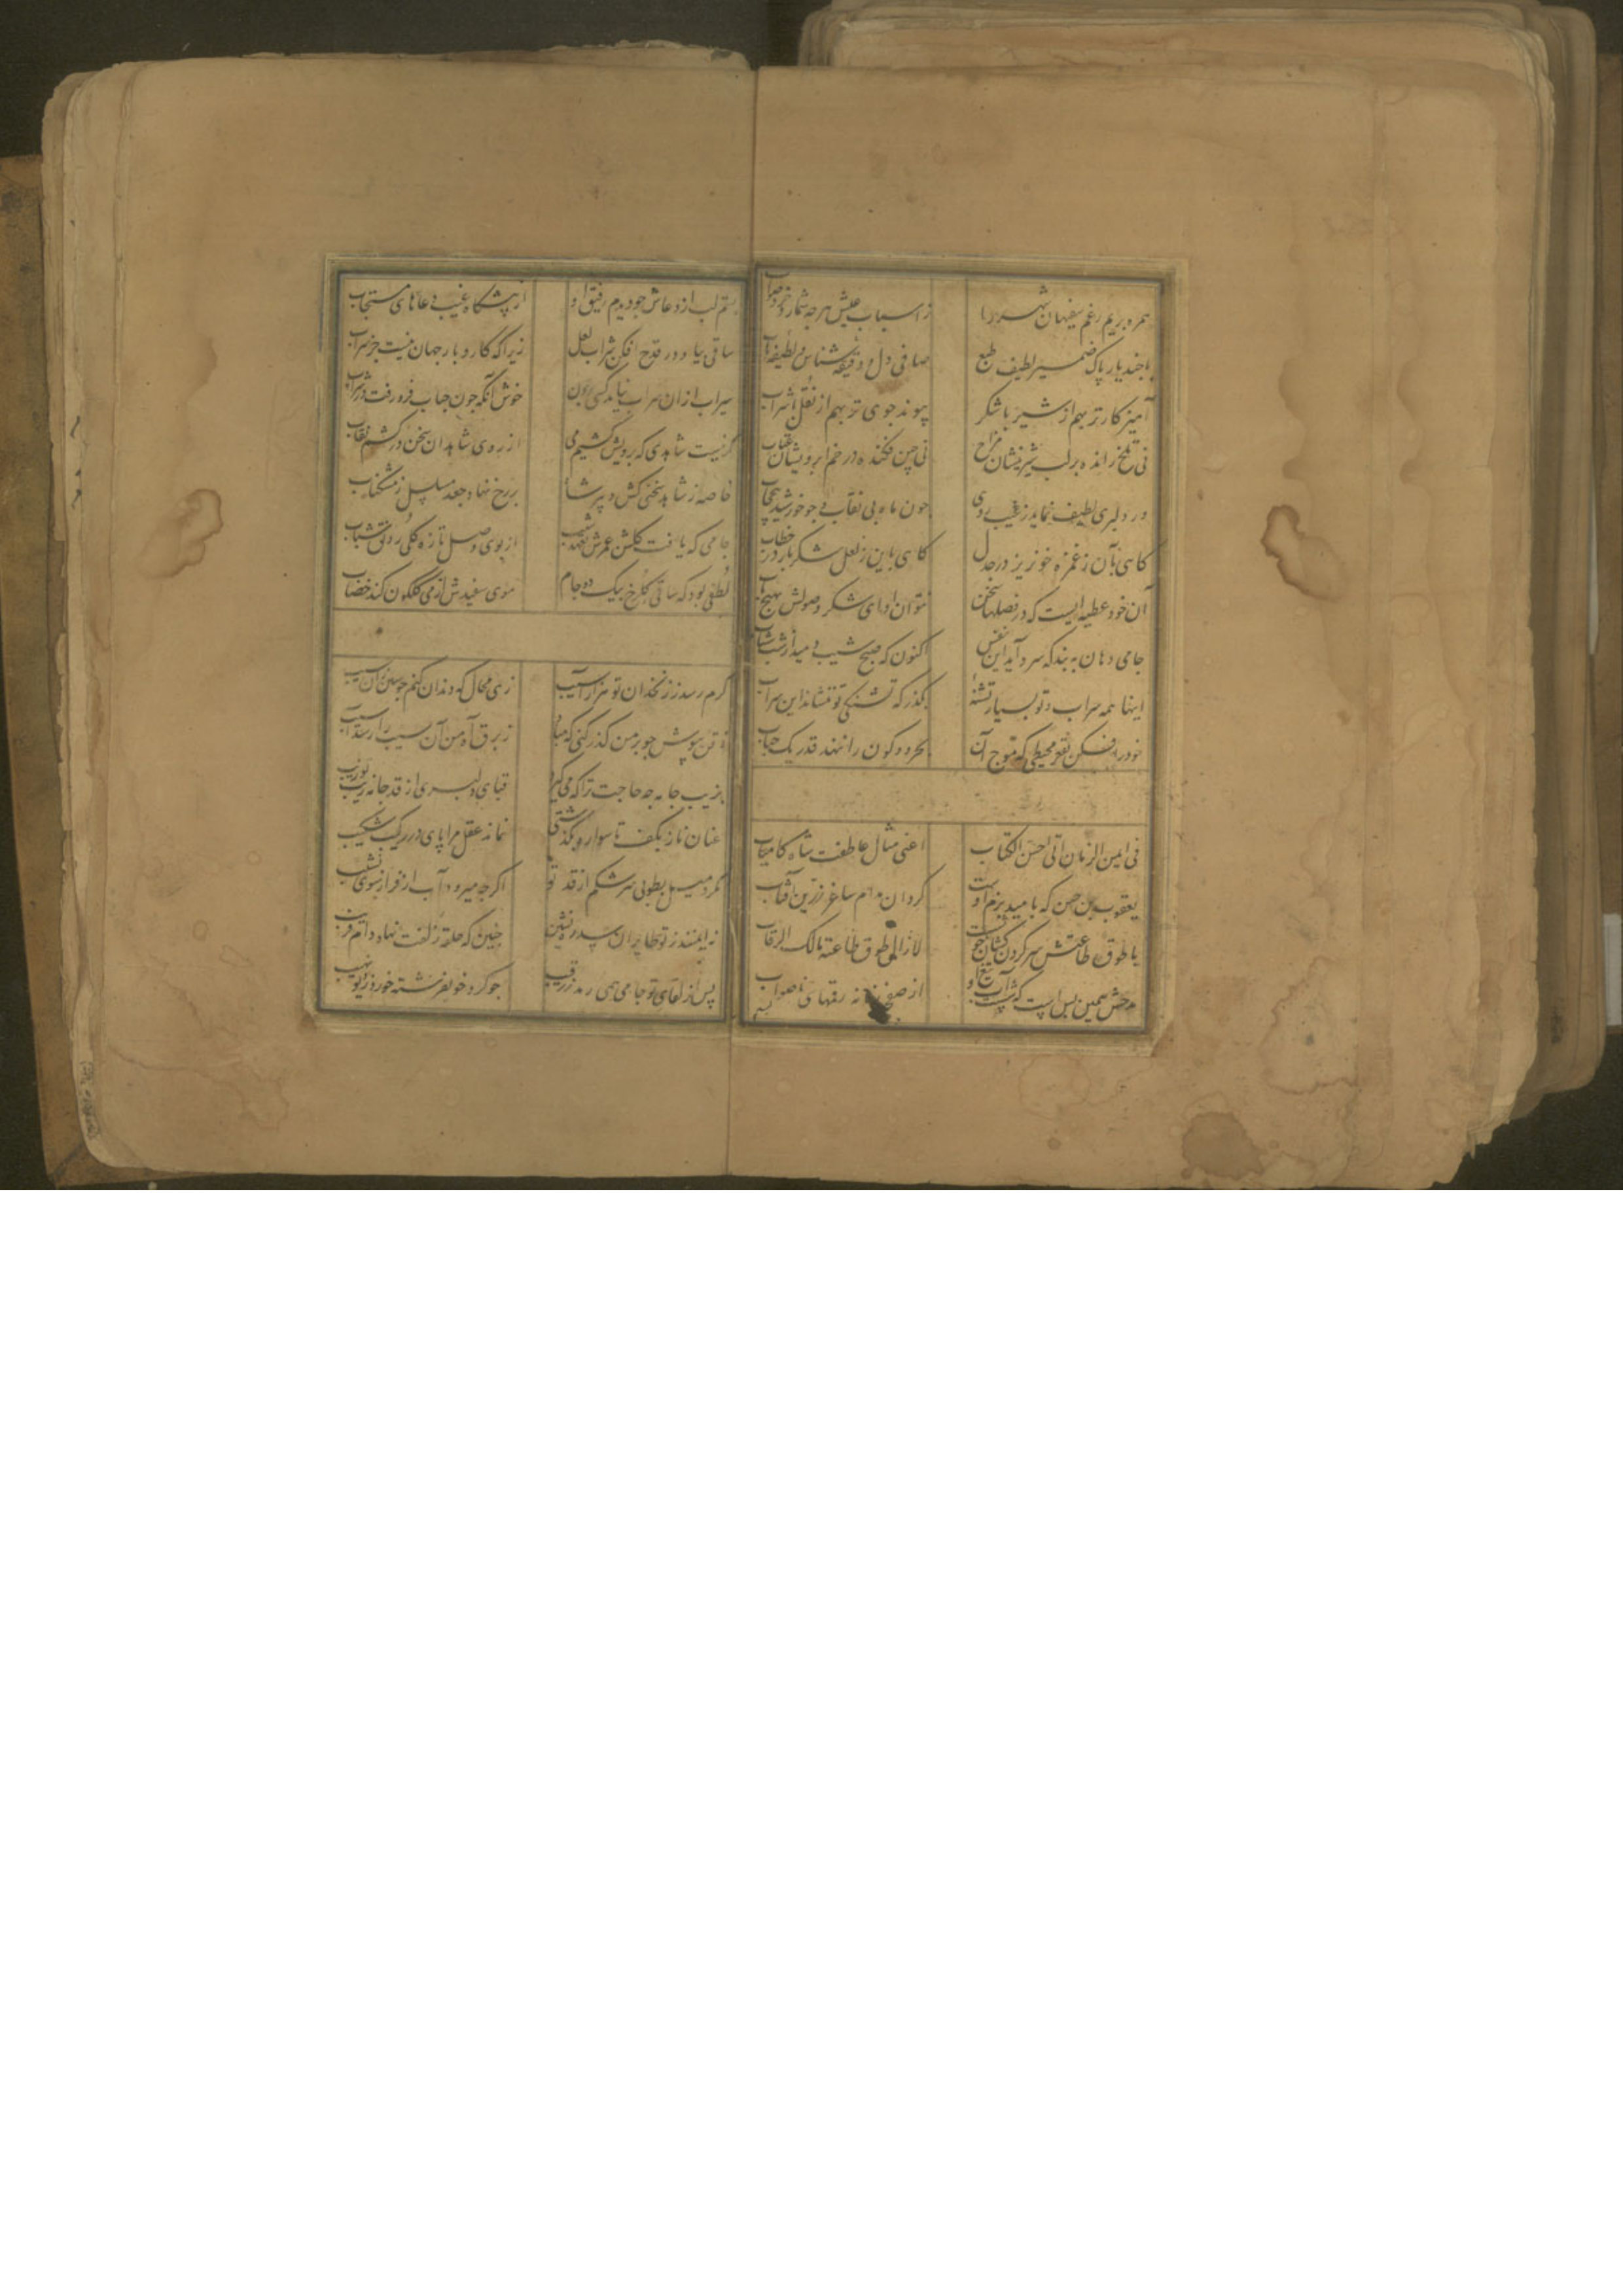 همره بریم رغم سفیهان شهر را
ز اسباب عیش هرچه شمارد خرد صواب
با چند یار پاک ضمیر لطیف طبع
صافی دل و دقیقه شناس و لطیفه یاب
آمیز کارتر بهم از شیر با شکر
پیوند جوی تر بهم از نقل با شراب
نی تلخ رانده بر لب شیرینشان مزاح
نی چین فکنده در خم ابرویشان عتاب
ور دلبری لطیف نماید ز غیب روی
چون ماه بی نقاب و چو خورشید بی حجاب
کاهی بآن ز غمزه خونریز در جدل
کاهی باین ز لعل شکربار در خطاب
آن خود عطیه ایست که در فصلها سخن
نتوان ادای شکر وصولش بهیچ باب
جامی دهان ببند که سرد آید این نفس
اکنون که صبح شیب دمید از شب شباب
اینها همه سراب و تو بسیار تشنه
بگذر که تشنگی تو ننشاند این سراب
خود را فکن بقعر محیطی که موج آن
بحر دو کون را ننهد قدر یک حباب
فی ایمن الزمان اتی احسن الکتاب
اعنی مثال عاطفت شاه کامیاب
یعقوب بن حسن که بامید بزم اوست
کردان مدام ساغر زرین آفتاب
با طوق طاعتش سر کردن کشان خوشست
لا زال طوق طاعته مالک الرقاب
مدحش همین بس است که شست آب تیغ او
از صفحه زمانه رقمهای ناصواب
بستم لب از دعاش چو دیدم رفیق او
از پیشگاه غیب دعاهای مستجاب
ساقی بیا و در قدح افکن شراب لعل
زیرا که کار و بار جهان نیست جز سراب
سیراب ازان سراب نیامد کسی برون
خوش آنکه چون حباب فرو رفت در شراب
کر نیست شاهدی که برویش کشیم می
از روی شاهدان سخن در کشم نقاب
خاصه ز شاهد سخنی کش دبیر شاه
بر رخ نهاد جعد مسلسل ز مشک ناب
جامی که یافت کلشن عمرش بعهد شیب
از بوی وصل تازه کلی رونق شباب
لطفی بود که ساقی کلرخ بیک دو جام
موی سفیدش از می کلکون کند خضاب
کرم رسد ز زنخدان تو هزار آسیب
زهی محال که دندان کنم چو سین زان سیب
ذقن بپوش چو بر من کذر کنی که مباد
ز برق آه من آن سیب را رسد آسیب
بزیب جامه چه حاجت ترا که می کیرد
قبای دلبری از قد جانه زیب تو زیب
عنان ناز بکف تا سواره بگذشتی
نماند عقل مرا پای در رکیب شکیب
نکرد میل بطوبی سرشکم از قد تو
اکرچه میرود آب از فراز سوی نشیب
نه ایمنند ز تو طایران سدره نشین
چنین که حلقه زلفت نهاد دام فریب
پس از لقای تو جامی همی رمد ز رقیب
چو کرد خو بفرشته خورد ز دیو نهیب